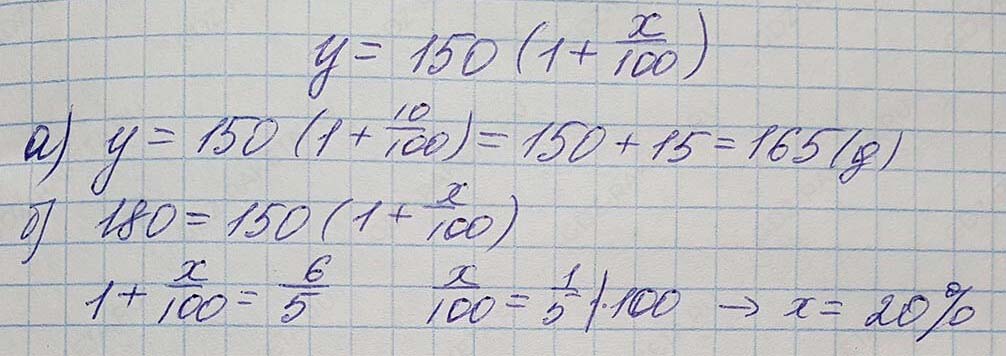 y = 150 (1 + x/100)
а) y = 150 (1 + 10/100) = 150 + 15 = 165 (g)
б) 180 = 150 (1 + x/100)
1 + x/100 = 6/5 x/100 = 1/5 |·100 → x = 20%